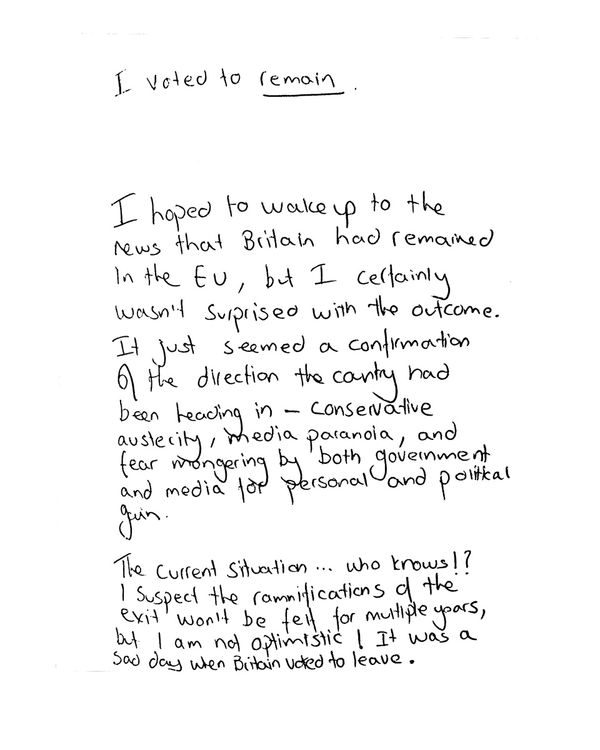 I voted to remain.
I hoped to wake up to the
news that Britain had remained
in the EU, but I certainly
wasn't surprised with the outcome.
It just seemed a confirmation
of the direction the cantry had
been heading in – conservative
austerity, media paranoia, and
fear mongering by both government
and media for personal and political
gain.
The current situation... who knows!?
I suspect the ramnifications of the
exit won't be felt for multiple years,
but I am not optimistic! It was a
sad day when Britain voted to leave.